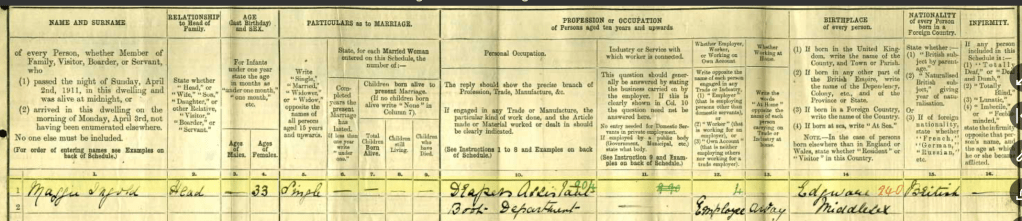 NAME AND SURNAME
of every Person, whether Member of
Family, Visitor, Boarder, or Servant,
who
(1) passed the night of Sunday, April
2nd, 1911, in this dwelling and
was alive at midnight, or
(2) arrived in this dwelling on the
morning of Monday, April 3rd, not
having been enumerated elsewhere.
No one else must be included.
(For order of entering names see Examples on
back of Schedule.)
RELATIONSHIP
to Head of
Family.
State whether
"Head," or
"Wife," "Son,"
"Daughter," or
other Relative,
"Visitor,"
"Boarder," or
"Servant."
AGE
(last Birthday)
and SEX.
For Infants
under one year
state the age
in months as
"under one month,"
"one month,"
etc.
Ages
of
Males.
Ages
of
Females.
PARTICULARS as to MARRIAGE.
Write
"Single,"
"Married,"
"Widower,"
or "Widow,"
opposite the
names of
all persons
aged 15 years
and upwards.
State, for each Married Woman
entered on this Schedule, the
number of:—
Completed
years the
present
Marriage
has
lasted.
If less than
one year
write
"under
one."
Children born alive to
present Marriage.
(If no children born
alive write "None" in
Column 7).
Total
Children
Born
Alive.
Children
still
Living.
Children
who
have
Died.
PROFESSION or OCCUPATION
of Persons aged ten years and upwards
Personal Occupation.
The reply should show the precise branch of
Profession, Trade, Manufacture, &c.
If engaged in any Trade or Manufacture, the
particular kind of work done, and the Article
made or Material worked or dealt in should
be clearly indicated.
(See Instructions 1 to 8 and Examples on
back of Schedule.)
Industry or Service with
which worker is connected.
This question should generally
be answered by stating
the business carried on by
the employer. If this is
clearly shown in Col. 10
the question need not be
answered here.
No entry needed for Domestic Servants
in private employment.
If employed by a public
body (Government, Municipal, etc.)
state what body.
(See Instruction 9 and Examples
on back of Schedule.)
Whether Employer,
Worker,
or Working on
Own Account.
Write opposite the
name of each person
engaged in any
Trade or Industry,
(1) "Employer"
(that is employing
persons other than
domestic servants),
or
(2) "Worker" (that
is working for an
employer), or
(3) "Own Account"
(that is neither
employing others
nor working for a
trade employer).
Whether
Working at
Home.
Write the
words
"At Home"
opposite the
name of each
person
carrying on
Trade or
Industry at
home.
BIRTHPLACE
of every person.
(1) If born in the United Kingdom,
write the name of the
County, and Town or Parish.
(2) If born in any other part of
the British Empire, write
the name of the Dependency,
Colony, etc., and of the
Province or State.
(3) If born in a Foreign Country,
write the name of the Country.
(4) If born at sea, write "At Sea."
NOTE.—In the case of persons
born elsewhere than in England
or Wales, state whether "Resident" or
"Visitor" in this Country.
NATIONALITY
of every Person
born in a
Foreign Country.
State whether:—
(1) "British
subject by parentage."
(2) "Naturalised
British subject,"
giving
year of naturalisation.
Or
(3) If of foreign
nationality,
state whether
"French,"
"German,"
"Russian,"
etc.
INFIRMITY.
If any person
included in this
Schedule is:—
(1) "Totally
Deaf," or "Deaf
and Dumb,"
(2) "Totally
Blind,"
(3) "Lunatic,"
(4) "Imbecile,"
state the infirmity
opposite that person's
name, and
the age at which
he or she became
afflicted.
1. 2. 3. 4. 5. 6. 7. 8. 9. 10. 11. 12. 13. 14. 15. 16.
1 Head - 33 Single Drapers Assistant 4 Edgware 240 British
2 Book Department Employee Away Middlesex